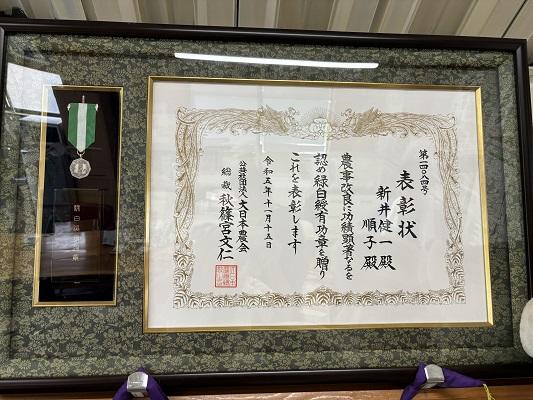 第一四〇八四号
表彰状
新井健一殿
順子殿
農事改良に功績顕著なるを
認め緑白綬有功章を贈り
これを表彰します
令和五年十一月十五日
公益社団法人大日本農会
総裁 秋篠宮文仁